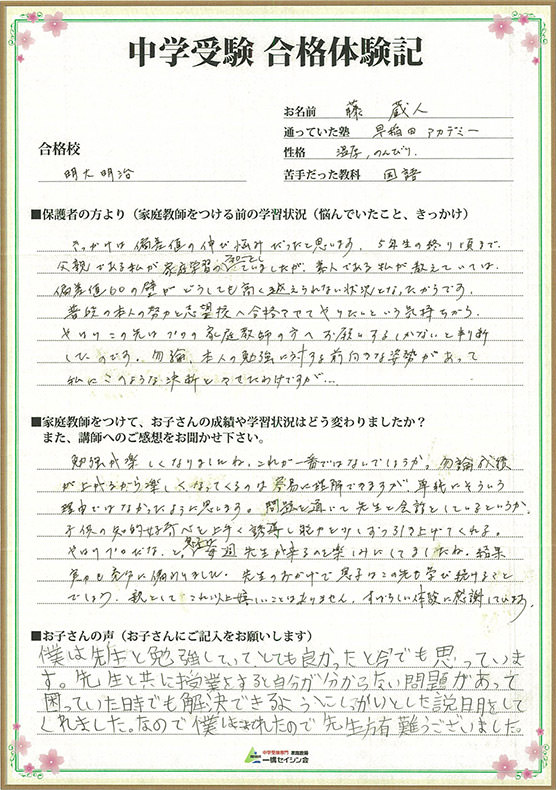 中学受験 合格体験記
お名前 藤 蔵人
通っていた塾 早稲田アカデミー
合格校
性格 温厚、のんびり
明大明治
苦手だった教科 国語
■保護者の方より（家庭教師をつける前の学習状況（悩んでいたこと、きっかけ）
きっかけは偏差値の伸び悩みだったと思います。5年生の終り頃まで、
父親である私が家庭学習をしていましたが、素人である私が教えていては、
偏差値60の壁がどうしても高く越えられない状況となったからです。
普段の本人の努力と志望校へ合格させてやりたいという気持ちから、
やはりこの先はプロの家庭教師の方へお願いするしかないと判断
したのです。勿論、本人の勉強に対する前向きな姿勢があって
私にこのような決断をさせたわけですが…
■家庭教師をつけて、お子さんの成績や学習状況はどう変わりましたか？
また、講師へのご感想をお聞かせ下さい。
勉強が楽しくなりましたね。これが一番ではないでしょうか。勿論成績
が上がるから楽しくなってくるのは容易に理解できますが、単純にそういう
理由ではなかったように思います。問題を通じて先生と会話をしているというか、
子供の知的好奇心を上手く誘導し能力を少しずつ引き上げてくれる。
やはりプロだな、と。息子も毎週先生が来るのを楽しみにしてましたね。結果
実力も充分に備わりました。先生のおかげで息子はこの先も学び続けること
でしょう。親としてこれ以上嬉しいことはありません。すばらしい体験に感謝しています。
■お子さんの声（お子さんにご記入をお願いします）
僕は先生と勉強していってとても良かったと今でも思っていま
す。先生と共に授業をすると自分が分からない問題があって
困っていた時でも解決できるようにしっかりとした説明をして
くれました。なので僕は まれたので先生方有難うございました。
中学受験専門 家庭教師
一橋セイシン会